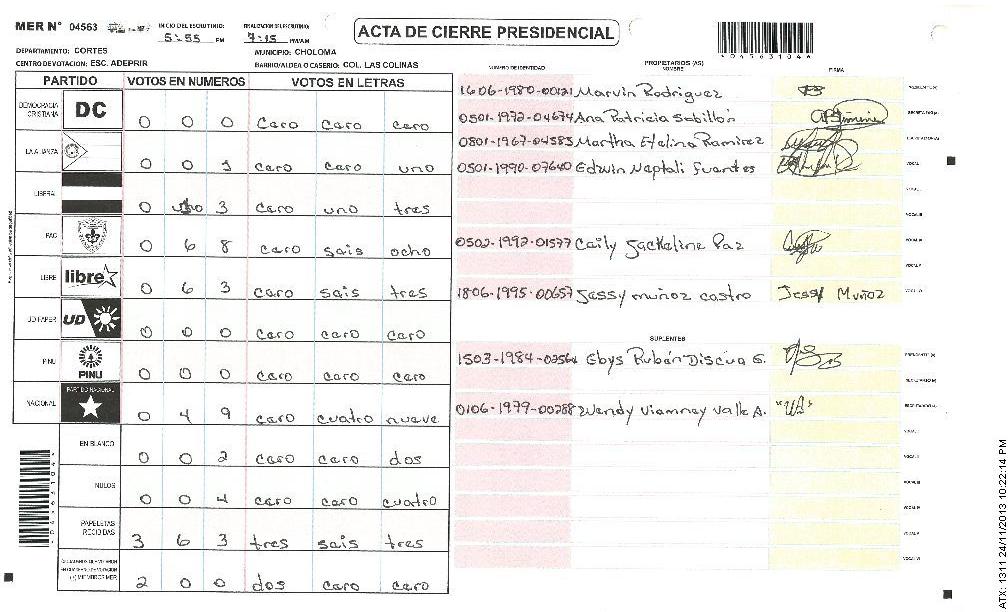 MER N° 04563
INICIO DEL ESCRUTINIO:
5:55 PM
FINALIZACION DEL ESCRUTINIO:
7:15 PM/AM
ACTA DE CIERRE PRESIDENCIAL
DEPARTAMENTO: CORTES
MUNICIPIO: CHOLOMA
CENTRO DE VOTACION: ESC. ADEPRIR
BARRIO/ALDEA O CASERIO: COL. LAS COLINAS
PARTIDO VOTOS EN NUMEROS VOTOS EN LETRAS
DEMOCRACIA CRISTIANA DC 0 0 0 cero cero cero
LA ALIANZA 0 0 1 cero cero uno
LIBERAL 0 3 cero uno tres
PAC 0 6 8 cero sais ocho
LIBRE libre 0 6 3 cero sais tres
UD FAPER UD 0 0 0 cero cero cero
PINU PINU 0 0 0 cero cero cero
NACIONAL PARTIDO NACIONAL 0 4 9 cero cuatro nueve
EN BLANCO 0 0 2 cero cero dos
NULOS 0 0 4 cero cero cuatro
PAPELETAS RECIBIDAS 3 6 3 tres sais tres
2 0 0 dos cero cero
NUMERO DE IDENTIDAD PROPIETARIOS (AS) NOMBRE FIRMA
1606-1980-00121 Marvin Rodriguez
0501-1972-04674 Ana Patricia Sabillón
0801-1967-04585 Martha Etelina Ramirez
0501-1990-07640 Edwin Neptali fuentes
0502-1992-01577 Caily Jackeline Paz
1806-1995-00657 Jessy muñoz castro Jessy Muñoz
SUPLENTES
1503-1984-02564 Ebys Rubén Discua S.
0106-1979-00288 Wendy Viamney Valle A.
045631044
ATX: 1311 24/11/2013 10:22:14 PM